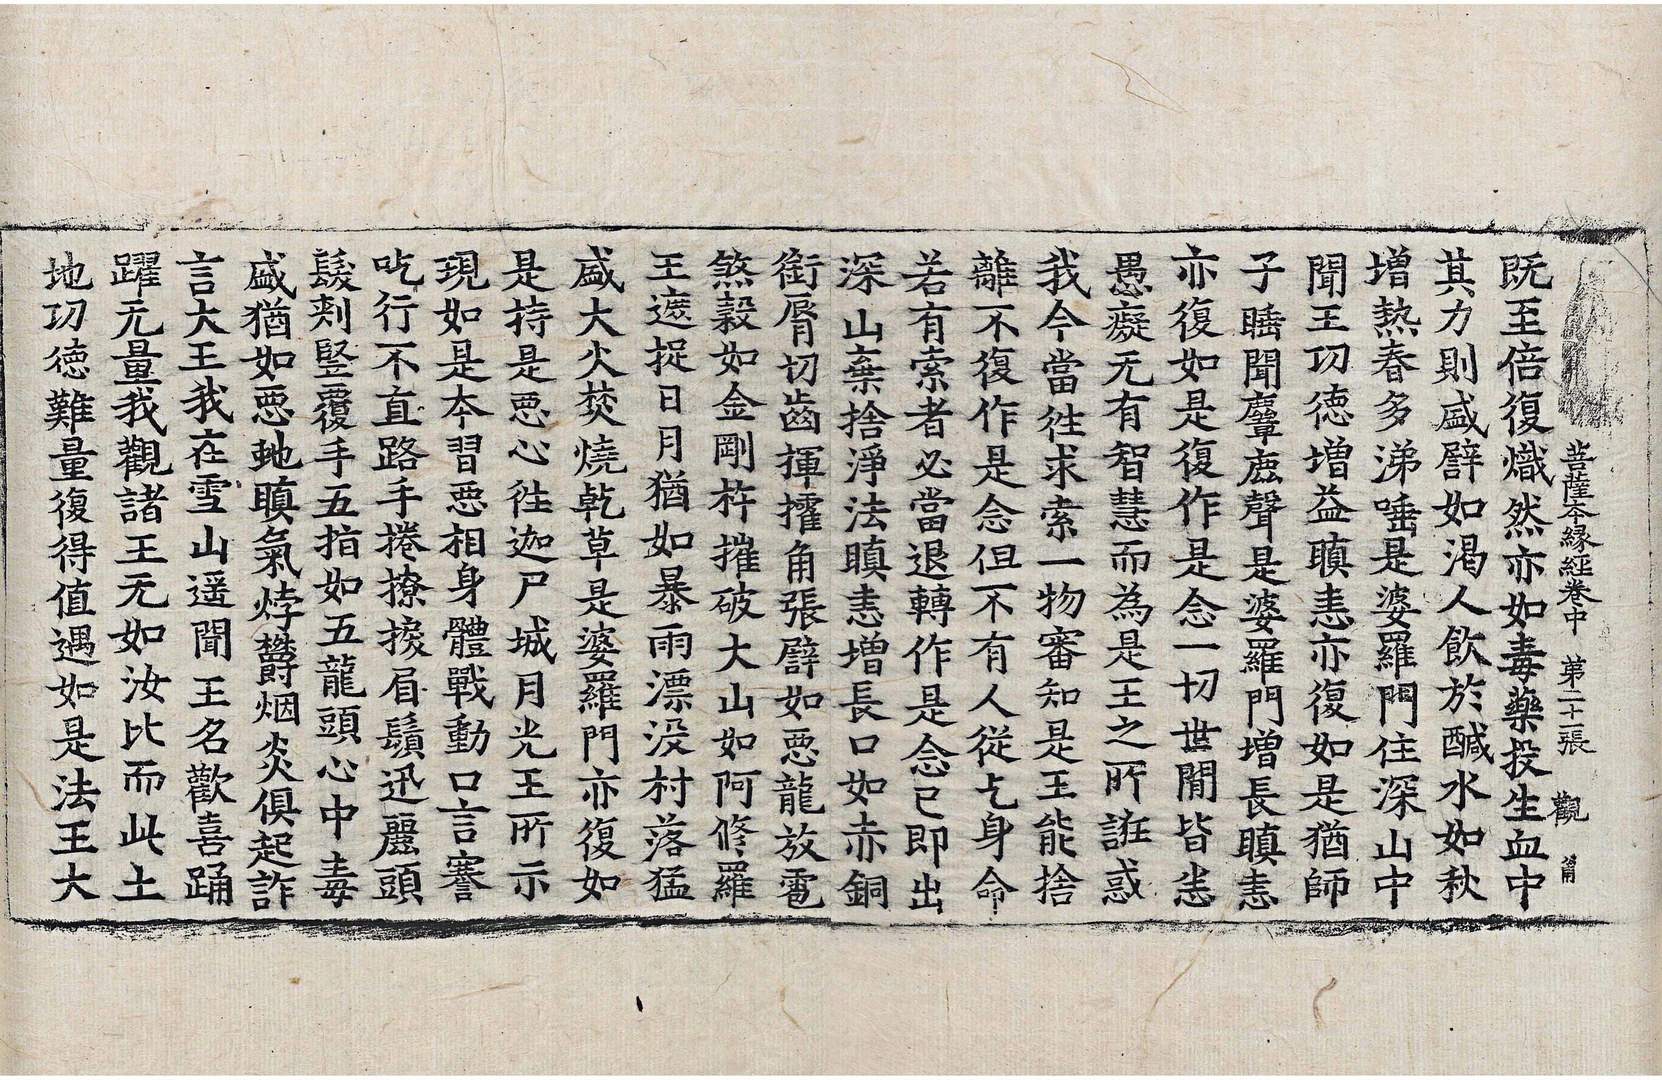 菩薩本緣經卷中 第二十張 觀
既至倍復熾然亦如毒藥投生血中
其力則盛譬如渴人飲於醎水如秋
增熱春多涕唾是婆羅門住深山中
聞王功德增益瞋恚亦復如是猶師
子睡聞麞鹿聲是婆羅門增長瞋恚
亦復如是復作是念一切世閒皆悉
愚癡无有智慧而為是王之所誑惑
我今當往求索一物審知是王能捨
離不復作是念但不有人從乞身命
若有索者必當退轉作是念已即出
深山棄捨淨法瞋恚增長口如赤銅
銜脣切齒揮攉角張譬如惡龍放雹
煞穀如金剛杵摧破大山如阿脩羅
王遮捉日月猶如暴雨漂没村落猛
盛大火焚燒乾草是婆羅門亦復如
是持是惡心往迦尸城月光王所示
現如是本習惡相身體戰動口言謇
吃行不直路手捲撩捩眉鬚迅麗頭
髮刾竪覆手五指如五龍頭心中毒
盛猶如惡虵瞋氣烰㶿烟炎俱起詐
言大王我在雪山遥聞王名歡喜踊
躍无量我觀諸王无如汝比而此土
地功德難量復得值遇如是法王大